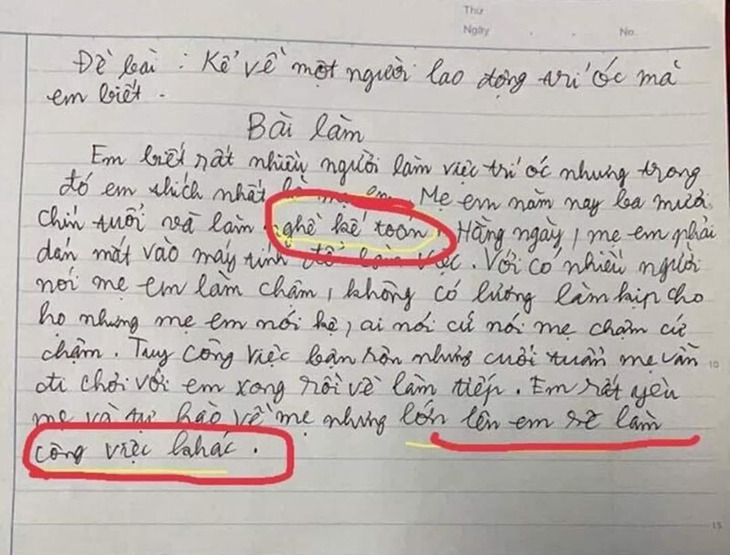 Thứ
Ngày . . No.
Đề bài : Kể về một người lao động trí óc mà
em biết .
Bài làm
Em biết rất nhiều người làm việc trí óc nhưng trong
đó em thích nhất là mẹ em. Mẹ em năm nay ba mươi
chín tuổi và làm nghề kế toán. Hằng ngày, mẹ em phải
dán mắt vào máy tính để làm việc. Với có nhiều người
nói mẹ em làm chậm, không có lương làm kịp cho
họ nhưng mẹ em nói kệ, ai nói cứ nói mẹ chậm cứ
chậm. Tuy công việc bận rộn nhưng cuối tuần mẹ vẫn
đi chơi với em xong rồi về làm tiếp. Em rất yêu
mẹ và tự hào về mẹ nhưng lớn lên em sẽ làm
công việc khác.
10
15